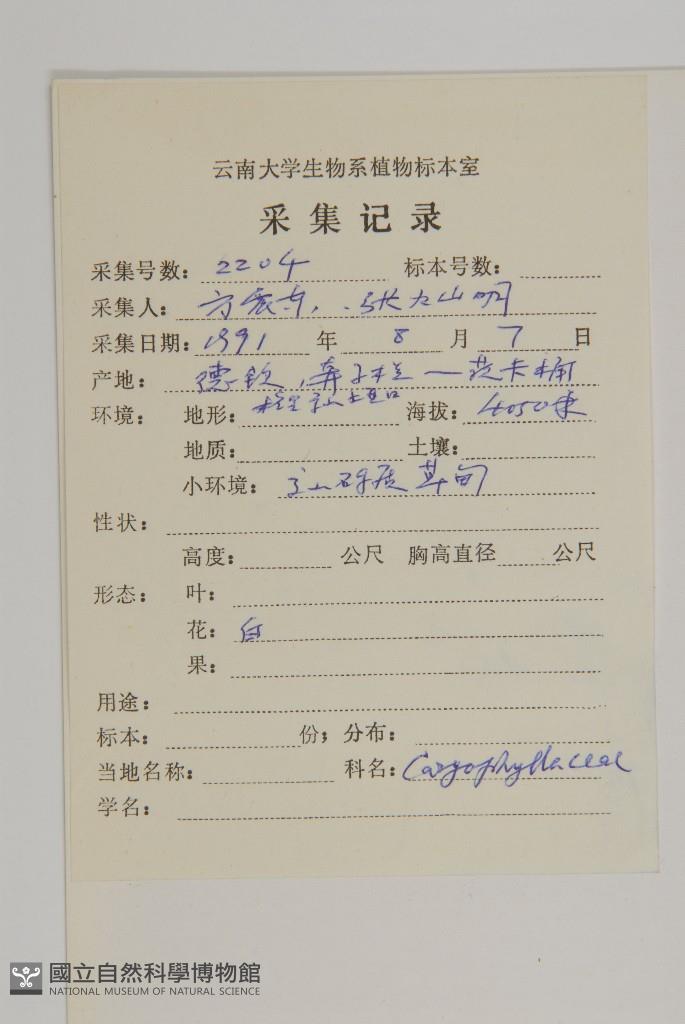 云南大学生物系植物标本室
采集记录
采集号数: 2204 标本号数:
采集人: 方震东, 张大山明
采集日期: 1991 年 8 月 7 日
产地: 德钦, 奔子栏—茂卡桶
环境: 地形: 垭口 海拔: 4050米
地质: 土壤:
小环境: 砾质草甸
性状:
高度: 公尺 胸高直径 公尺
形态: 叶:
花: 白
果:
用途:
标本: 份; 分布:
当地名称: 科名: Caryophyllaceae
学名:
國立自然科學博物館
NATIONAL MUSEUM OF NATURAL SCIENCE